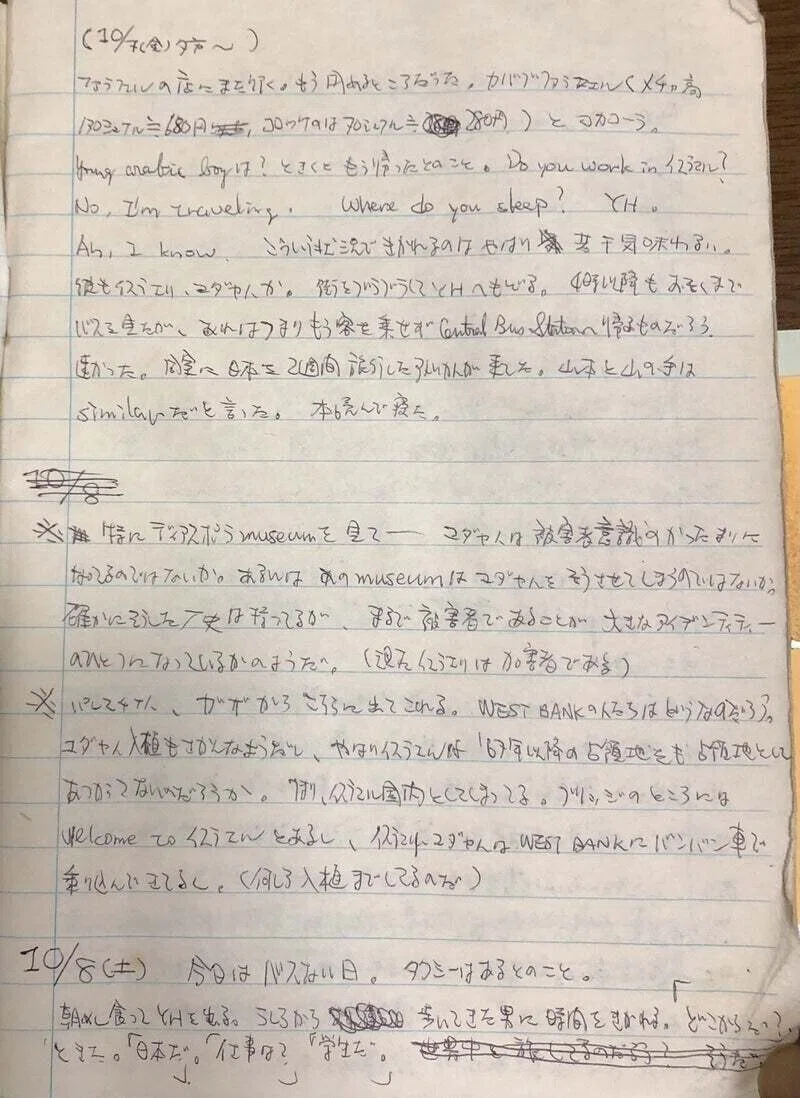 (10/7(金)夕方〜)
ファラフェルの店にまた行く。もう閉めるところだった。カバブファラフェル(メチャ高
130シェケル≒680円, コロッケのは70シェケル≒280円)とコカコーラ。
Young arabic boyは?ときくともう帰ったとのこと。Do you work in イスラエル?
No, I'm traveling. Where do you sleep? YH。
Ah, I know. こういう状況できかれるのはやはり若干気味わるい。
彼もイスラエリ、ユダヤ人か。街をぶらぶらしてYHへもどる。4時以降もおそくまで
バスを見たが、あれはつまりもう客を乗せずCentral Bus Stationへ帰るものだろう
。同室に日本を2週間旅行した が来た。山本と山の手は
similarだと言った。本読んで寝た。
10/8
※ 特にディアスポラmuseumを見て── ユダヤ人は被害者意識のかたまりに
なってるのではないか。あるいはあのmuseumはユダヤ人をそうさせてしまうのではないか。
確かにそうした歴史は持ってるが、まるで被害者であることが大きなアイデンティティー
のひとつになっているかのようだ。(現在イスラエリは加害者である)
※ パレスチナ人、ガザからこちらに出てこれる。WEST BANKの人たちはどうなのだろう。
ユダヤ人入植もさかんなようだし、やはりイスラエルは'67年以降の占領地をも占領地として
あつかってないのだろうか。つまり、イスラエル国内としてしまってる。ブリッジのところには
Welcome to イスラエルとあるし、イスラエリーユダヤ人はWEST BANKにバンバン車で
乗り込んできてるし。(何しろ入植までしてるのだ)
10/8(土) 今日はバスない日。タクシーはあるとのこと。
朝めし食ってYHを出る。うしろから歩いてきた男に時間をきかれる。「どこからだ?」
ときた。「日本だ」。「仕事は?」「学生だ」。